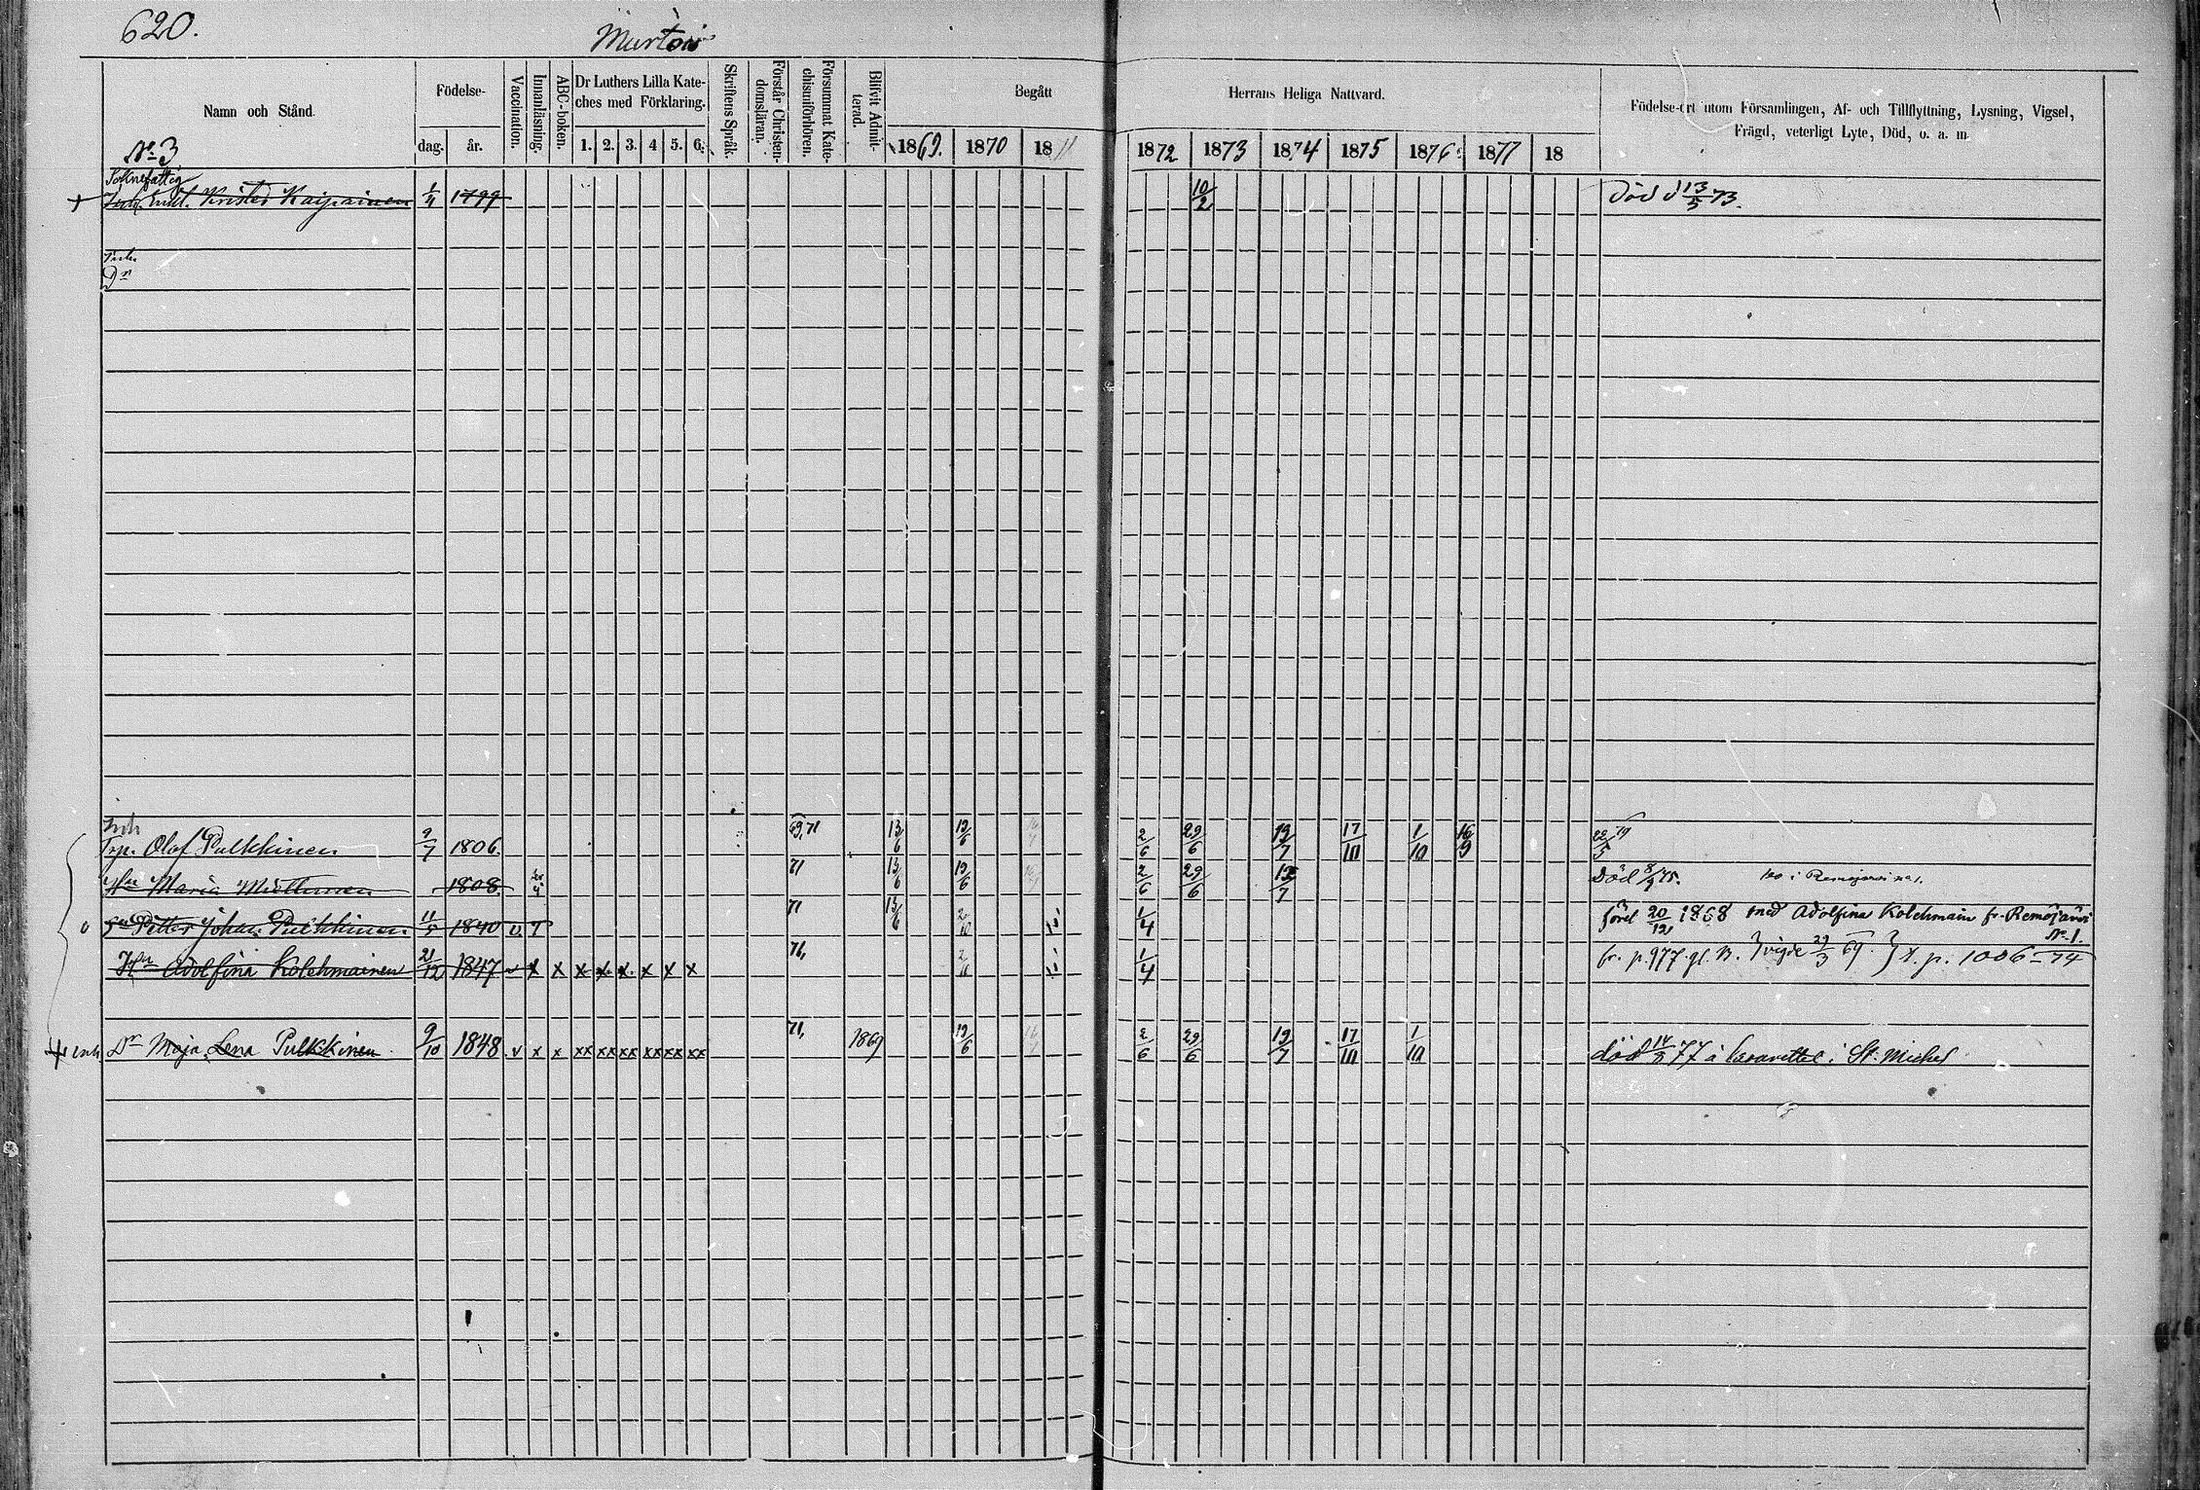 620.
Murtois
Namn och Stånd.
Födelse-
dag.
år.
Vaccination.
Innanläsning.
ABC-boken.
Dr Luthers Lilla Kate-
ches med Förklaring.
1. 2. 3. 4 5. 6.
Skriftens Språk.
Förstår Christen-
domsläran.
Försummat Kate-
chismiförhören.
Blifvit Admit-
terad.
Begått
Herrans Heliga Nattvard.
1869. 1870 18
1872 1873 1874 1875 1876 1877 18
Födelse-ort utom Församlingen, Af- och Tillflyttning, Lysning, Vigsel,
Frägd, veterligt Lyte, Död, o. a. m.
No 3
Soknefattig
Kaipainen 1/4 1799 10/2 död d 13/5 73.
Inh.
Dr
Inh
Olof Pulkkinen 9/7 1806. 69,71 13/6 19/6 2/6 29/6 19/7 17/10 1/10 16/9
Hu Maria 1808. 71 13/6 19/6 2/6 29/6 Död 8/4 75.
Sn Petter Johan Pulkkinen 11/5 1840 v. 71 13/6 1/4 förel 20/12 1868 med Adolfina Kolehmain fr. Remojärvi
No 1.
Hu Adolfina Kolehmainen 21/12 1847 v x x x x x x x x 71, 1/4 fr. p. 977 gl. B. vigde 29/3 69. t. p. 1006 74
inh Dr Maja Lena Pulkkinen 9/10 1848 v x x xx xx xx xx xx xx 71, 1869 19/6 2/6 29/6 19/7 17/10 1/10 död 14/8 77 å lasarettet i St. Michel